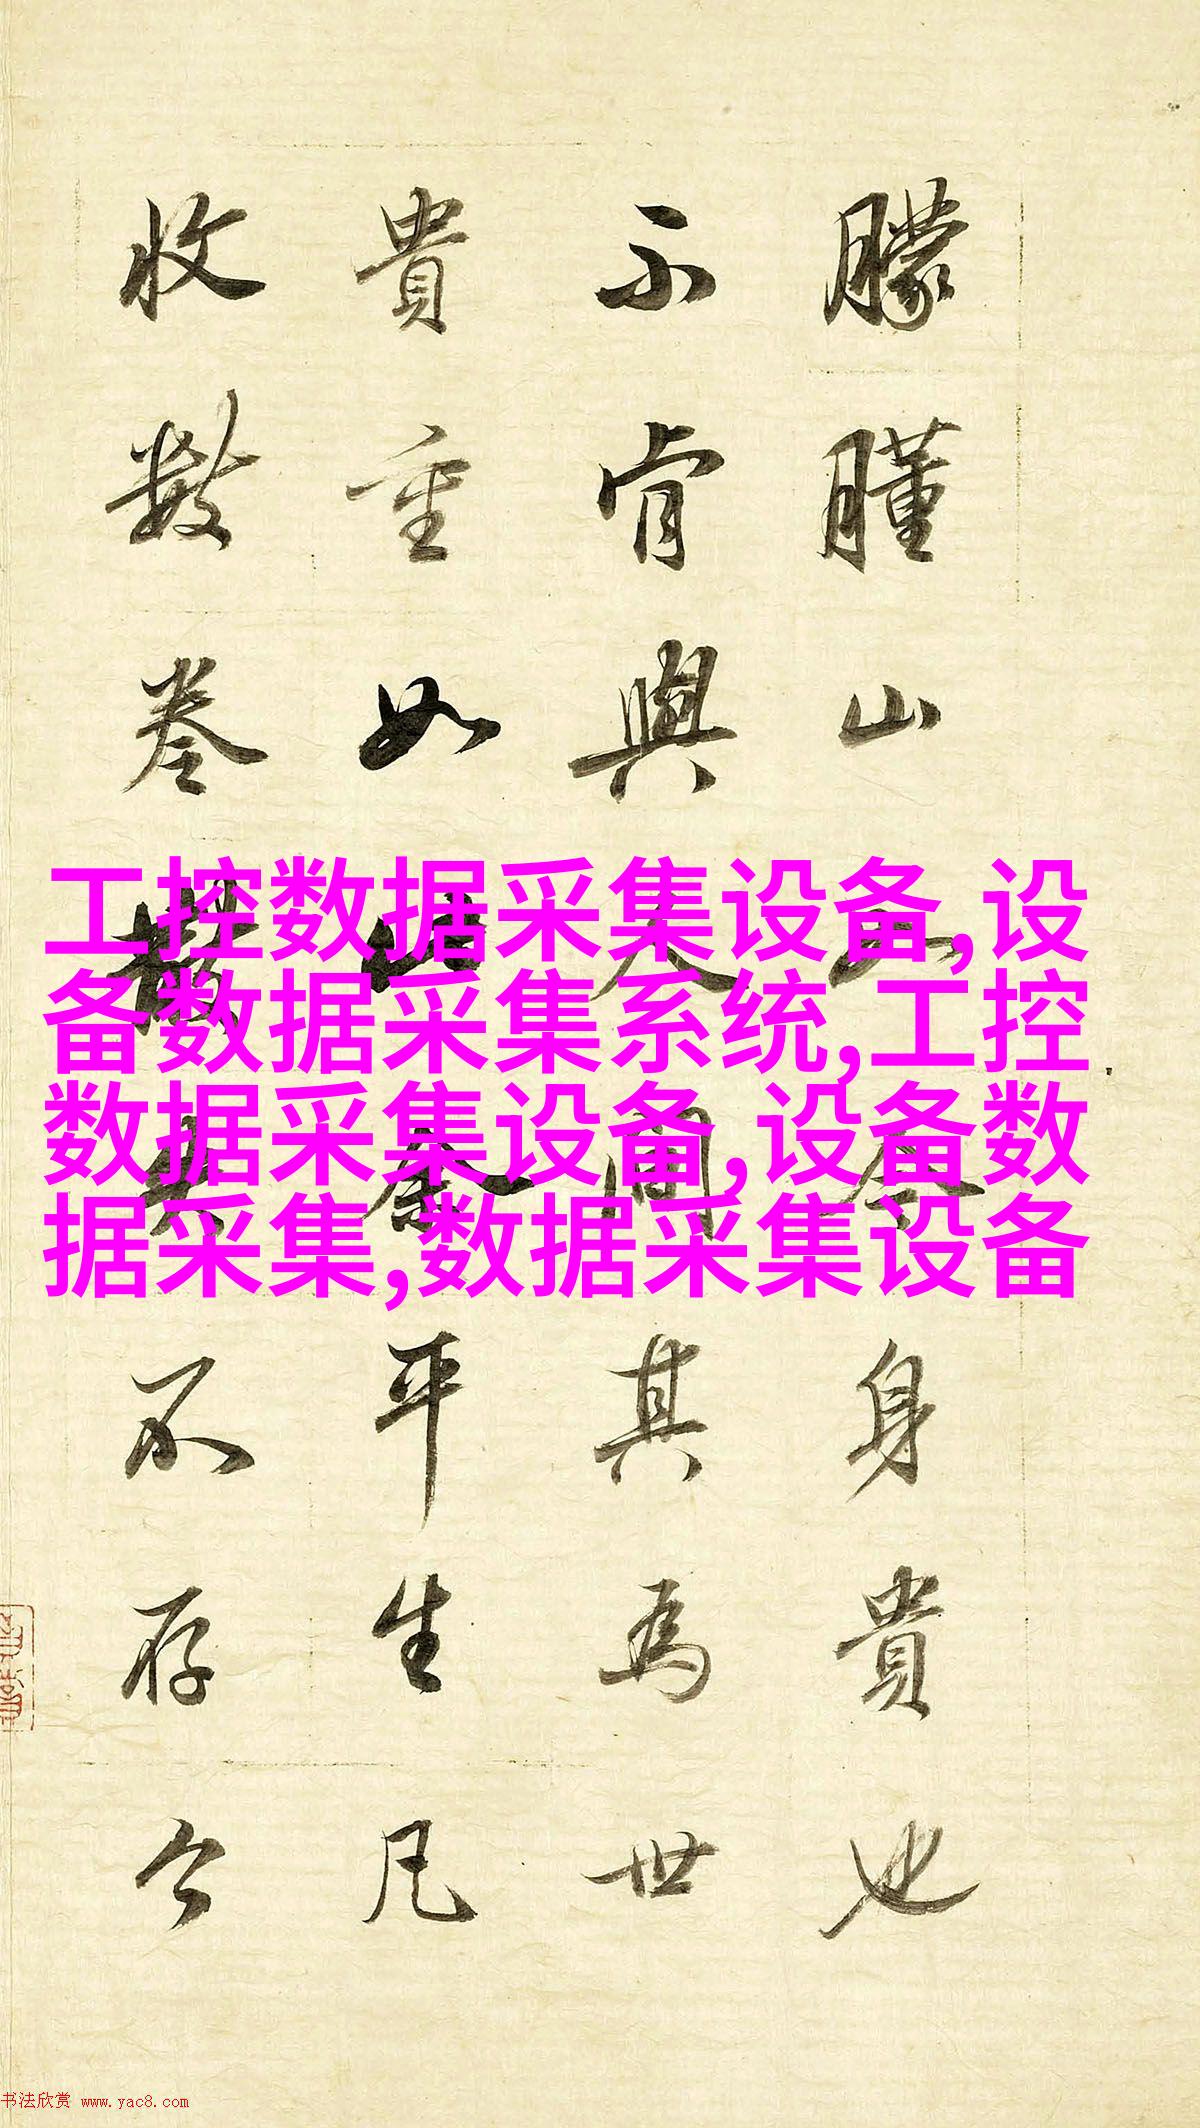 朦朣山身貴也
不肯與人間其為世
貴重如此余平生凡
收數卷不存今
工控数据采集设备,设
备数据采集系统,工控
数据采集设备,设备数
据采集,数据采集设备
书法欣赏 www.yac8.com